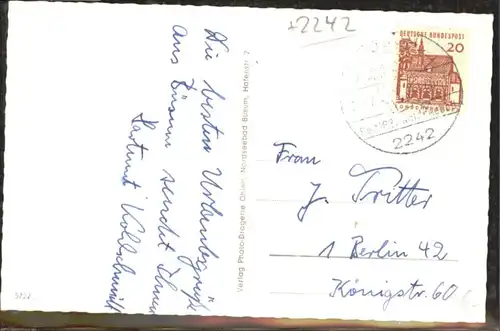 +2242
Die besten Urlaubsgrüße
aus Büsum sendet Ihnen
Hartmut Kohlschmidt
Verlag Photo-Drogerie Ohlen, Nordseebad Büsum, Hafenstr. 2
DEUTSCHE BUNDESPOST
20
2242
Frau
J. Tritter
1 Berlin 42
Königstr. 60